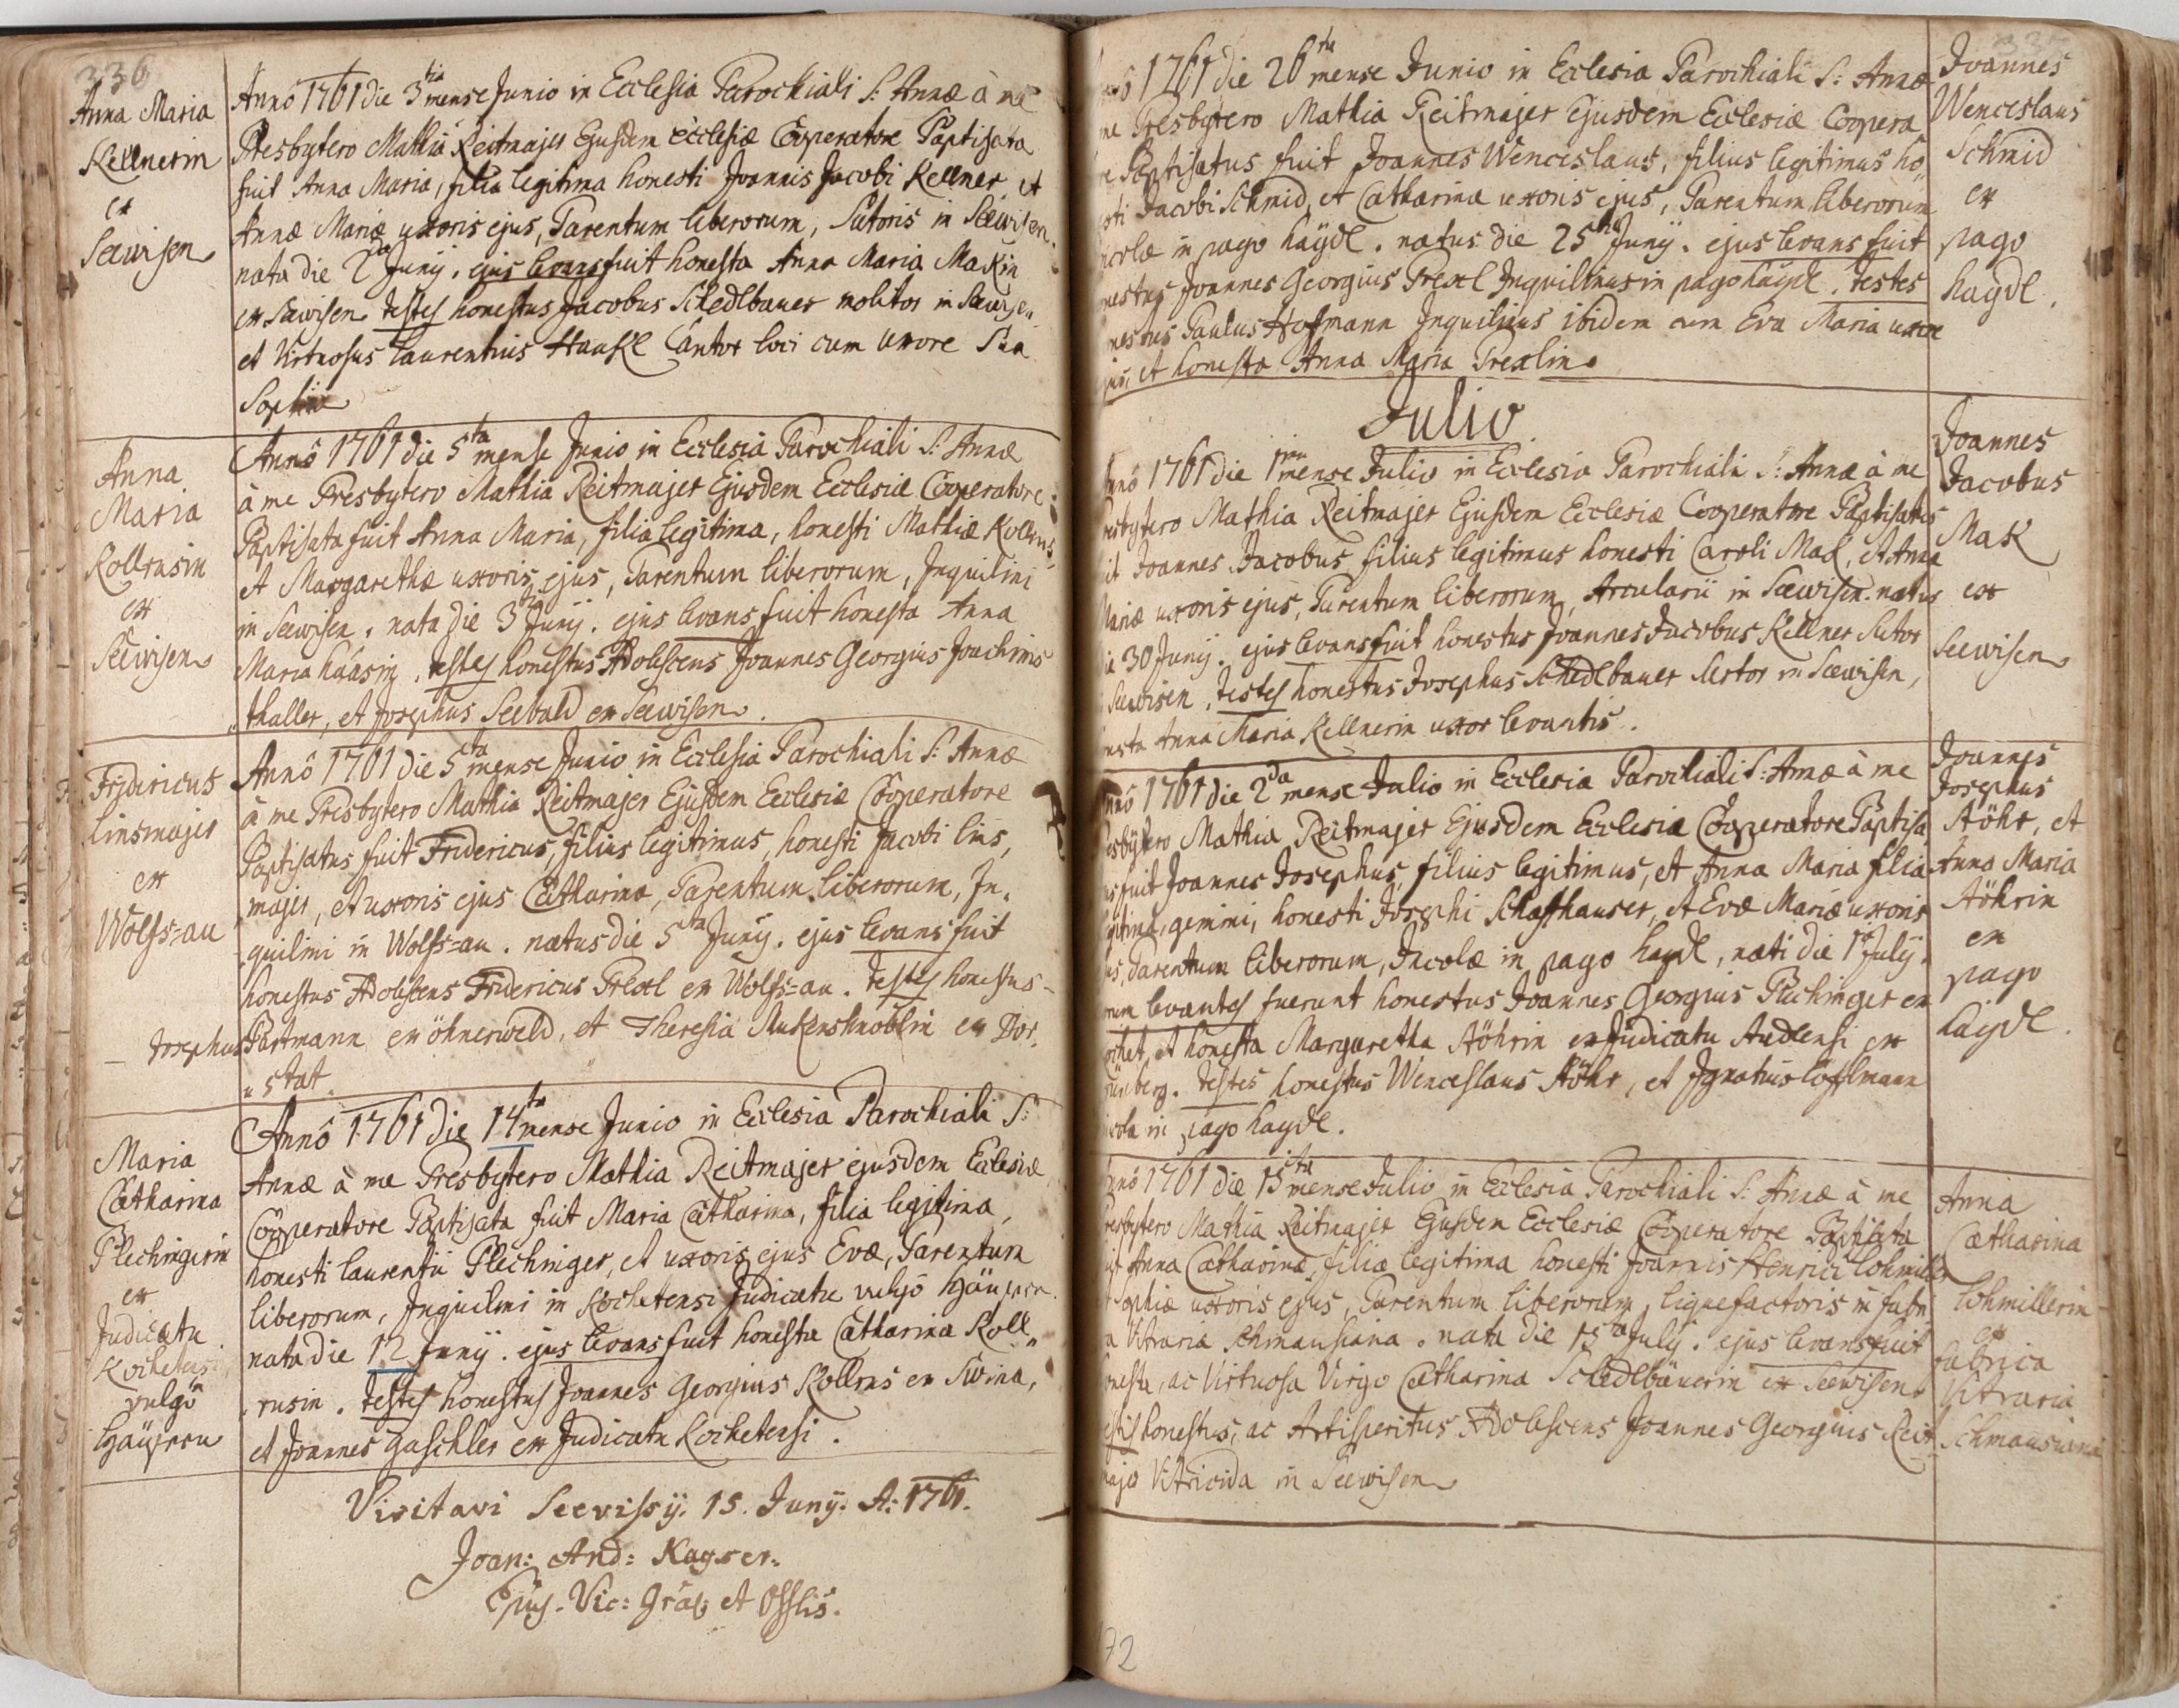 336
Anna Maria
Kellnerin
ex
Seewisen
Annô 1761 die 3tia mense Junio in Ecclesia Parochiali S: Annæ à me
Presbytero Mathia Reitmajer Ejusdem Ecclesiæ Cooperatore Paptisata
fuit Anna Maria, filia legitima honesti Joannis Jacobi Kellner et
Annæ Mariæ uxoris ejus, Parentum liberorum, Sutoris in Seewisen.
nata die 2da Junij. ejus levans fuit honesta Anna Maria Makin
ex Seewisen testes honestus Jacobus Schedlbauer molitor in Seewise„
et Virtuosus Laurentius Haukl Cantor loci cum uxore Sua
Sophia
Anna
Maria
Kollrusin
ex
Seewisen
Annô 1761 die 5ta mense Junio in Ecclesia Parochiali S: Annæ
à me Presbytero Mathia Reitmajer Ejusdem Ecclesiæ Cooperatore
Paptisata fuit Anna Maria, filia legitima, honesti Mathiæ Kollrus
et Margarethæ uxoris ejus, Parentum liberorum, Inquilini
in Seewisen. nata die 3tia Junij. ejus levans fuit honesta Anna
Maria haasin, testes honestus Adolescens Joannes Georgius Joachims
„thaller, et Josephus Seebald ex Seewisen.
Fridiricus
Linsmajer
ex
Wolfs=au
Annô 1761 die 5ta mense Junio in Ecclesia Parochiali S: Annæ
à me Presbytero Mathia Reitmajer Ejusdem Ecclesiæ Cooperatore
Paptisatus fuit Fridericus, filius legitimus, honesti Jacobi Lins„
„majer, et uxoris ejus Catharina, Parentum liberorum, In„
„quilini in Wolfs=au. natus die 5ta Junij. ejus levans fuit
honestus Adolescens Fridericus Prexl ex Wolfs=au. testes honestus
— Josephus Partmann ex öhnerweld, et Theresia Mukenshnöblin ex Dor„
„stat
Maria
Catharina
Plechingerin
ex
Judicatu
Kochetensi
vulgô
Annô 1761 die 14ta mense Junio in Ecclesia Parochiali S:
Annæ à me Presbytero Mathia Reitmajer ejusdem Ecclesiæ
Cooperatore Paptisata fuit Maria Catharina, filia legitima,
honesti Laurentii Plechinger, et uxoris ejus Evæ, Parentum
liberorum, Inquilini in Kochetensi Judicatu vulgô
nata die 12 Junij. ejus levans fuit honesta Catharina Koll„
„rusin. testes honestus Joannes Georgius Kollrus ex Swina,
et Joannes Gaschler ex Judicatu Kochetensi.
Visitavi Seevisÿ. 15. Junÿ. A: 1761.
Joan: And: Kayser.
Vic: Grălis et Offlis.
1761 die 26ta mense Junio in Ecclesia Parochiali S: Annæ
me Presbytero Mathia Reitmajer Ejusdem Ecclesiæ Coopera
re Paptisatus fuit Joannes Wenceslaus, filius legitimus ho„
esti Jacobi Schmid, et Catharinæ uxoris ejus, Parentum liberorum
incolæ in pago haÿdl. natus die 25ta Junij. ejus levans fuit
nestus Joannes Georgius Prexl Inquilinus in pago haydl. testes
nestus Paulus Hofmann Inquilinus ibidem cum Eva Maria uxore
ejus, et honesta Anna Maria Prexlin.
Joannes
Wenceslaus
Schmid
ex
pago
haydl.
Julio
Annô 1761 die 1ma mense Julio in Ecclesia Parochiali S: Annæ à me
resbytero Mathia Reitmajer Ejusdem Ecclesiæ Cooperatore Paptisatus
uit Joannes Jacobus filius legitimus honesti Caroli Mak, et Annæ
Mariæ uxoris ejus, Parentum liberorum, Arcularii in Seewisen. natus
die 30 Junij. ejus levans fuit honestus Joannes Jacobus Kellner Sutor
Seewisen, testes honestus Josephus Schedlbauer Sertor in Seewisen,
nesta Anna Maria Kellnerin uxor levantis.
Joannes
Jacobus
Mak
ex
Seewisen
Annô 1761 die 2da mense Julio in Ecclesia Parochiali S: Annæ à me
resbytero Mathia Reitmajer Ejusdem Ecclesiæ Cooperatore Paptisa„
us fuit Joannes Josephus, filius legitimus, et Anna Maria filia
gitima, gemini, honesti Josephi Schaffhauser, et Evæ Mariæ uxoris
us, Parentum liberorum, Incolæ in pago haydl, nati die 1 Julij.
rum levantes fuerunt honestus Joannes Georgius Plechinger ex
ochet, et honesta Margaretha Stöhrin ex Judicatu Stadlensi ex
berg. testes honestus Wenceslaus Stöhr, et Ignatius Löfflmann
cola in pago haydl.
Joannes
Josephus
Stöhr, et
Anna Maria
Stöhrin
ex
pago
haydl.
Annô 1761 die 15ta mense Julio in Ecclesia Parochiali S: Annæ à me
resbytero Mathia Reitmajer Ejusdem Ecclesiæ Cooperatore Paptisata
uit Anna Catharina, filia legitima honesti Joannis Henrici Lohmiller
et Sophiæ uxoris ejus, Parentum liberorum, liquefactoris in fabri
a Vitraria Schmausiana. nata die 15ta Julij. ejus levans fuit
onesta, ac Virtuosa Virgo Catharina Schedlbäuerin ex Seewisen
estis honestus, ac Artisperitus Adolescens Joannes Georgius Reit„
major Vitricida in Seewisen
Anna
Catharina
Lohmillerin
ex
fabrica
Vitraria
Schmausiana
72